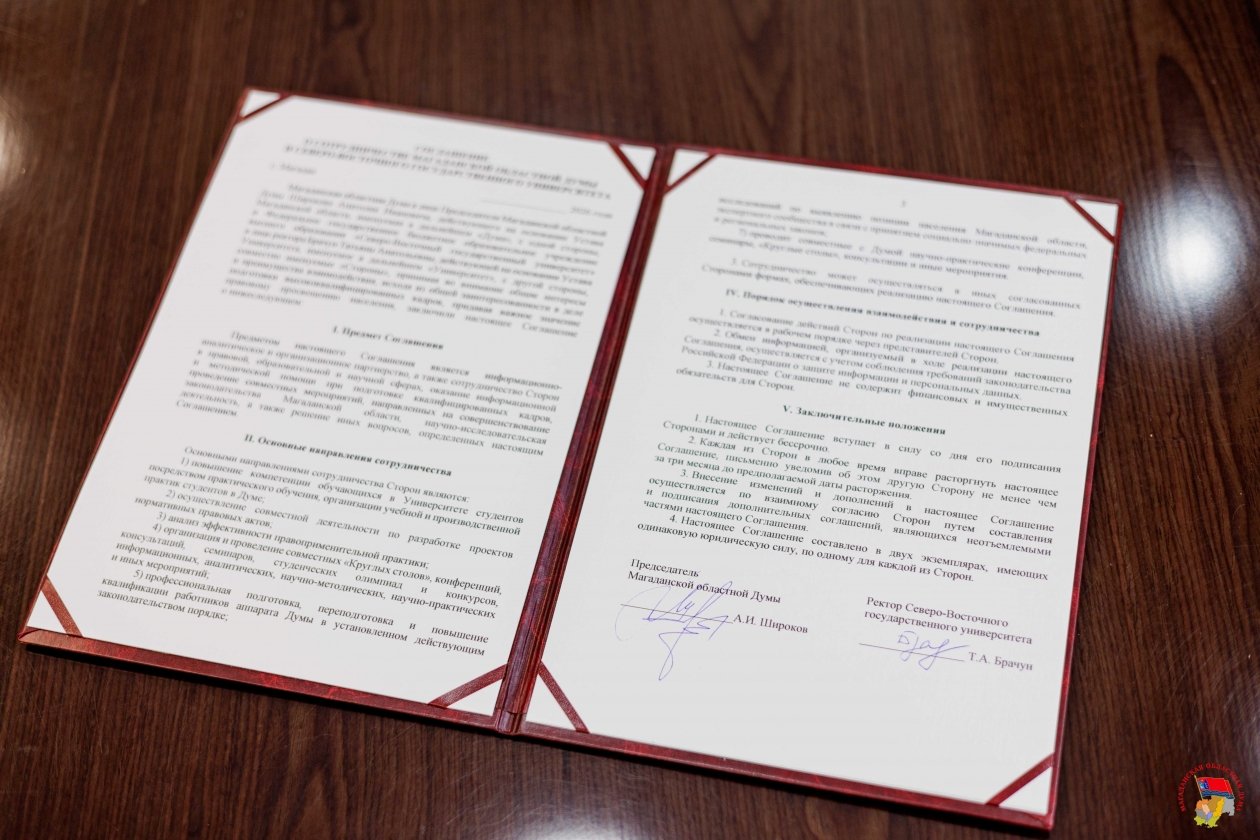 СОГЛАШЕНИЕ
О СОТРУДНИЧЕСТВЕ МАГАДАНСКОЙ ОБЛАСТНОЙ ДУМЫ
И СЕВЕРО-ВОСТОЧНОГО ГОСУДАРСТВЕННОГО УНИВЕРСИТЕТА
г. Магадан
Магаданская областная Дума в лице Председателя Магаданской областной
Думы Широкова Анатолия Ивановича, действующего на основании Устава
Магаданской области, именуемая в дальнейшем «Дума», с одной стороны,
и Федеральное государственное бюджетное образовательное учреждение
высшего образования «Северо-Восточный государственный университет»
в лице ректора Брачун Татьяны Анатольевны, действующей на основании Устава
Университета, именуемое в дальнейшем «Университет», с другой стороны,
совместно именуемые «Стороны», принимая во внимание общие интересы
и преимущества взаимодействия, исходя из общей заинтересованности в деле
подготовки высококвалифицированных кадров, придавая важное значение
правовому просвещению населения, заключили настоящее Соглашение
о нижеследующем
I. Предмет Соглашения
Предметом настоящего Соглашения является информационно-
аналитическое и организационное партнерство, а также сотрудничество Сторон
в правовой, образовательной и научной сферах, оказание информационной
и методической помощи при подготовке квалифицированных кадров,
проведение совместных мероприятий, направленных на совершенствование
законодательства Магаданской области, научно-исследовательская
деятельность, а также решение иных вопросов, определенных настоящим
Соглашением
II. Основные направления сотрудничества
Основными направлениями сотрудничества Сторон являются:
1) повышение компетенции обучающихся в Университете студентов
посредством практического обучения, организации учебной и производственной
практик студентов в Думе;
2) осуществление совместной деятельности по разработке проектов
нормативных правовых актов;
3) анализ эффективности правоприменительной практики;
4) организация и проведение совместных «Круглых столов», конференций,
консультаций, семинаров, студенческих олимпиад и конкурсов,
информационных, аналитических, научно-методических, научно-практических
и иных мероприятий;
5) профессиональная подготовка, переподготовка и повышение
квалификации работников аппарата Думы в установленном действующим
законодательством порядке;
2
исследований по выявлению позиции населения Магаданской области,
экспертного сообщества в связи с принятием социально значимых федеральных
и региональных законов;
7) проводит совместные с Думой научно-практические конференции,
семинары, «Круглые столы», консультации и иные мероприятия.
3. Сотрудничество может осуществляться в иных согласованных
Сторонами формах, обеспечивающих реализацию настоящего Соглашения.
IV. Порядок осуществления взаимодействия и сотрудничества
1. Согласование действий Сторон по реализации настоящего Соглашения
осуществляется в рабочем порядке через представителей Сторон.
2. Обмен информацией, организуемый в ходе реализации настоящего
Соглашения, осуществляется с учетом соблюдения требований законодательства
Российской Федерации о защите информации и персональных данных.
3. Настоящее Соглашение не содержит финансовых и имущественных
обязательств для Сторон.
V. Заключительные положения
1. Настоящее Соглашение вступает в силу со дня его подписания
Сторонами и действует бессрочно.
2. Каждая из Сторон в любое время вправе расторгнуть настоящее
Соглашение, письменно уведомив об этом другую Сторону не менее чем
за три месяца до предполагаемой даты расторжения.
3. Внесение изменений и дополнений в настоящее Соглашение
осуществляется по взаимному согласию Сторон путем составления
и подписания дополнительных соглашений, являющихся неотъемлемыми
частями настоящего Соглашения.
4. Настоящее Соглашение составлено в двух экземплярах, имеющих
одинаковую юридическую силу, по одному для каждой из Сторон.
Председатель
Магаданской областной Думы
А.И. Широков
Ректор Северо-Восточного
государственного университета
Т.А. Брачун
МАГАДАНСКАЯ ОБЛАСТНАЯ ДУМА